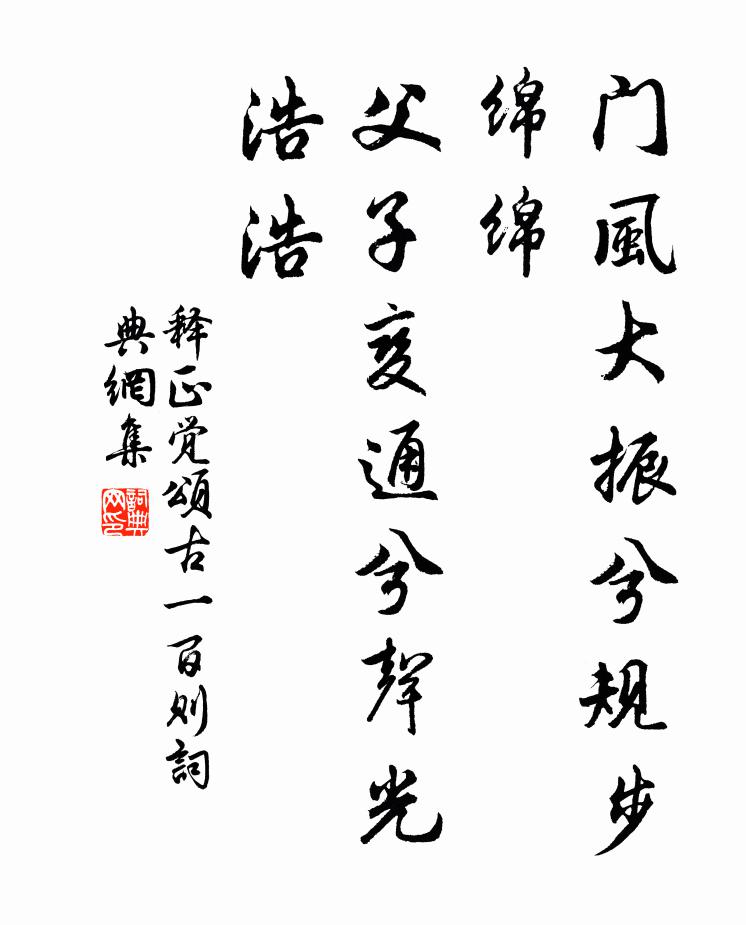 门風大振兮規步
绵绵
父子变通兮聲光
浩浩
释正觉頌古一百则詞
典網集
詞典
网印